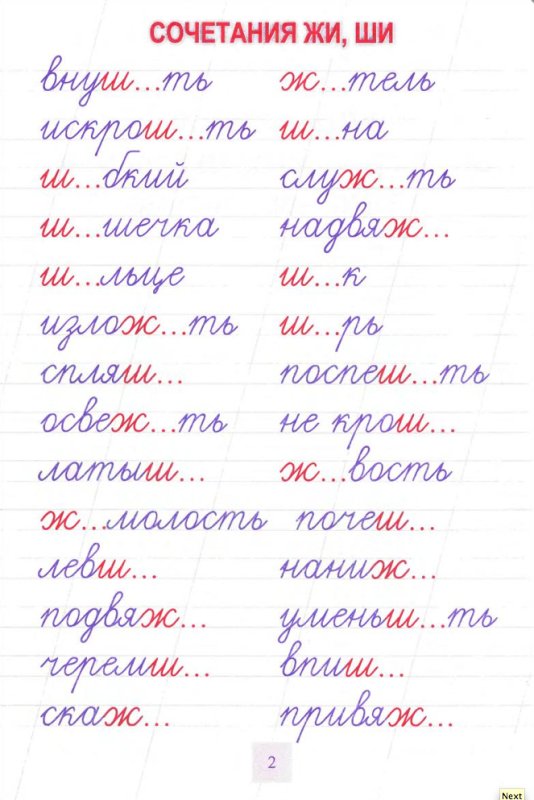 СОЧЕТАНИЯ ЖИ, ШИ
внуш...ть ж...тель
искрош...ть ш...на
ш...бкий служ...ть
ш...шечка надвяж...
ш...льце ш...к
излож...ть ш...рь
спляш... поспеш...ть
освеж...ть не крош...
латыш... ж...вость
ж...молость почеш...
левш... наниж...
подвяж... уменьш...ть
черемш... впиш...
скаж... привяж...
2
Next